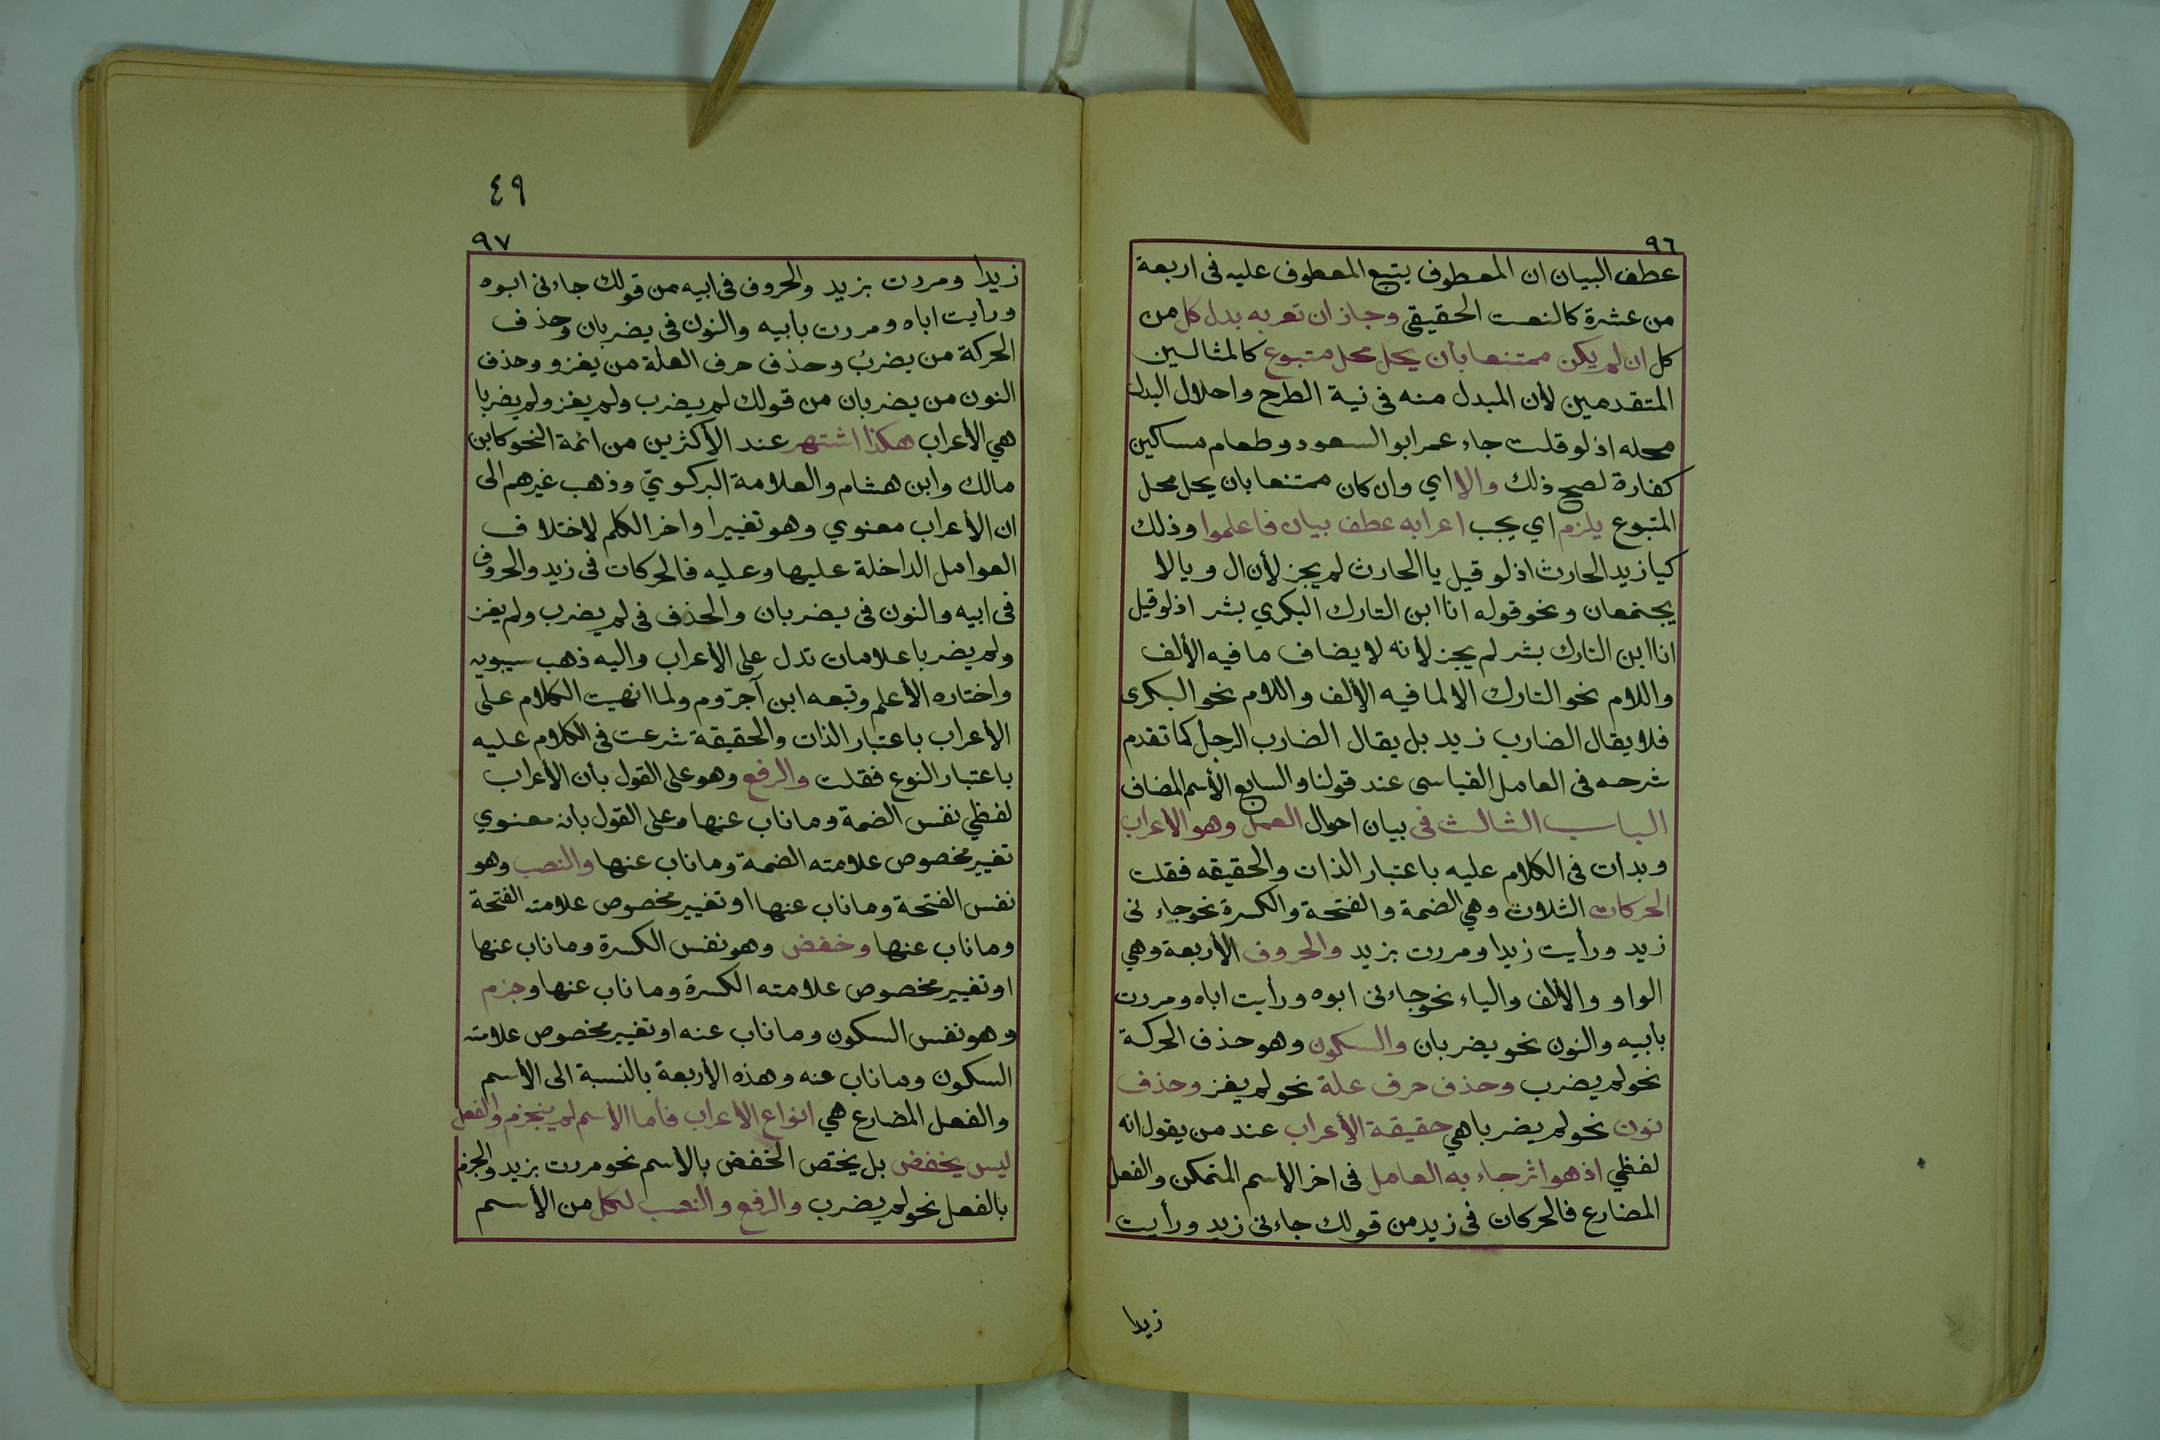 ٩٦
عطف البيان ان المعطوف يتبع المعطوف عليه فى اربعة
من عشرة كالنعت الحقيقي وجاز ان تعربه بدل كل من
كل ان لم يكن ممتنعا بأن يحل محل متبوع كالمثالين
المتقدمين لأن المبدل منه فى نية الطرح واحلال البدل
محله اذ لو قلت جاء عمر ابو السعود وطعام مساكين
كفارة لصح ذلك والا اي وان كان ممتنعا بان يحل محل
المتبوع يلزم اي يجب اعرابه عطف بيان فاعلموا وذلك
كيا زيد الحارث اذ لو قيل يا الحارث لم يجز لأن ال ويا لا
يجتمعان ونحو قوله انا ابن التارك البكري بشر اذ لو قيل
انا ابن التارك بشر لم يجز لأنه لا يضاف ما فيه الألف
واللام نحو التارك الا لما فيه الألف واللام نحو البكرى
فلا يقال الضارب زيد بل يقال الضارب الرجل كما تقدم
شرحه فى العامل القياسى عند قولنا والسابع الأسم المضاف
الباب الثالث فى بيان احوال العمل وهو الأعراب
وبدأت فى الكلام عليه باعتبار الذات والحقيقه فقلت
الحركات الثلاث وهي الضمة والفتحة والكسرة نحو جاء نى
زيد ورأيت زيدا ومررت بزيد والحروف الأربعة وهي
الواو والألف والياء نحو جاءنى ابوه ورأيت اباه ومررت
بأبيه والنون نحو يضربان والسكون وهو حذف الحركة
نحو لم يضرب وحذف حرف علة نحو لم يغز وحذف
نون نحو لم يضربا هي حقيقة الأعراب عند من يقول انه
لفظي اذ هو اثر جاء به العامل فى اخر الأسم المتمكن والفعل
المضارع فالحركات فى زيد من قولك جاءنى زيد ورأيت
زيدا
٤٩
٩٧
زيدا ومررت بزيد والحروف فى ابيه من قولك جاءنى ابوه
ورأيت اباه ومررت بأبيه والنون فى يضربان وحذف
الحركة من يضربُ وحذف حرف العلة من يغزو وحذف
النون من يضربان من قولك لم يضرب ولم يغز ولم يضربا
هي الأعراب هكذا اشتهر عند الأكثرين من ائمة النحو كابن
مالك وابن هشام والعلامة البركويّ وذهب غيرهم الى
ان الأعراب معنوي وهو تغيير اواخر الكلم لاختلاف
العوامل الداخلة عليها وعليه فالحركات فى زيد والحروف
فى ابيه والنون فى يضربان والحذف فى لم يضرب ولم يغز
ولم يضربا علامات تدل على الأعراب واليه ذهب سيبويه
واختاره الأعلم وتبعه ابن آجرّوم ولما انهيت الكلام على
الأعراب باعتبار الذات والحقيقة شرعت فى الكلام عليه
باعتبار النوع فقلت والرفع وهو على القول بأن الأعراب
لفظي نفس الضمة وما ناب عنها وعلى القول بانه معنوي
تغيير مخصوص علامته الضمة وما ناب عنها والنصب وهو
نفس الفتحة وما ناب عنها او تغيير مخصوص علامته الفتحة
وما ناب عنها وخفض وهو نفس الكسرة وما ناب عنها
او تغيير مخصوص علامته الكسرة وما ناب عنها وجزم
وهو نفس السكون وما ناب عنه او تغيير مخصوص علامته
السكون وما ناب عنه وهذه الأربعة بالنسبة الى الأسم
والفعل المضارع هي انواع الأعراب فأما الأسم لم ينجزم والفعل
ليس يخفض بل يختص الخفض بالأسم نحو مررت بزيد والجزم
بالفعل نحو لم يضرب والرفع والنصب لكل من الأسم